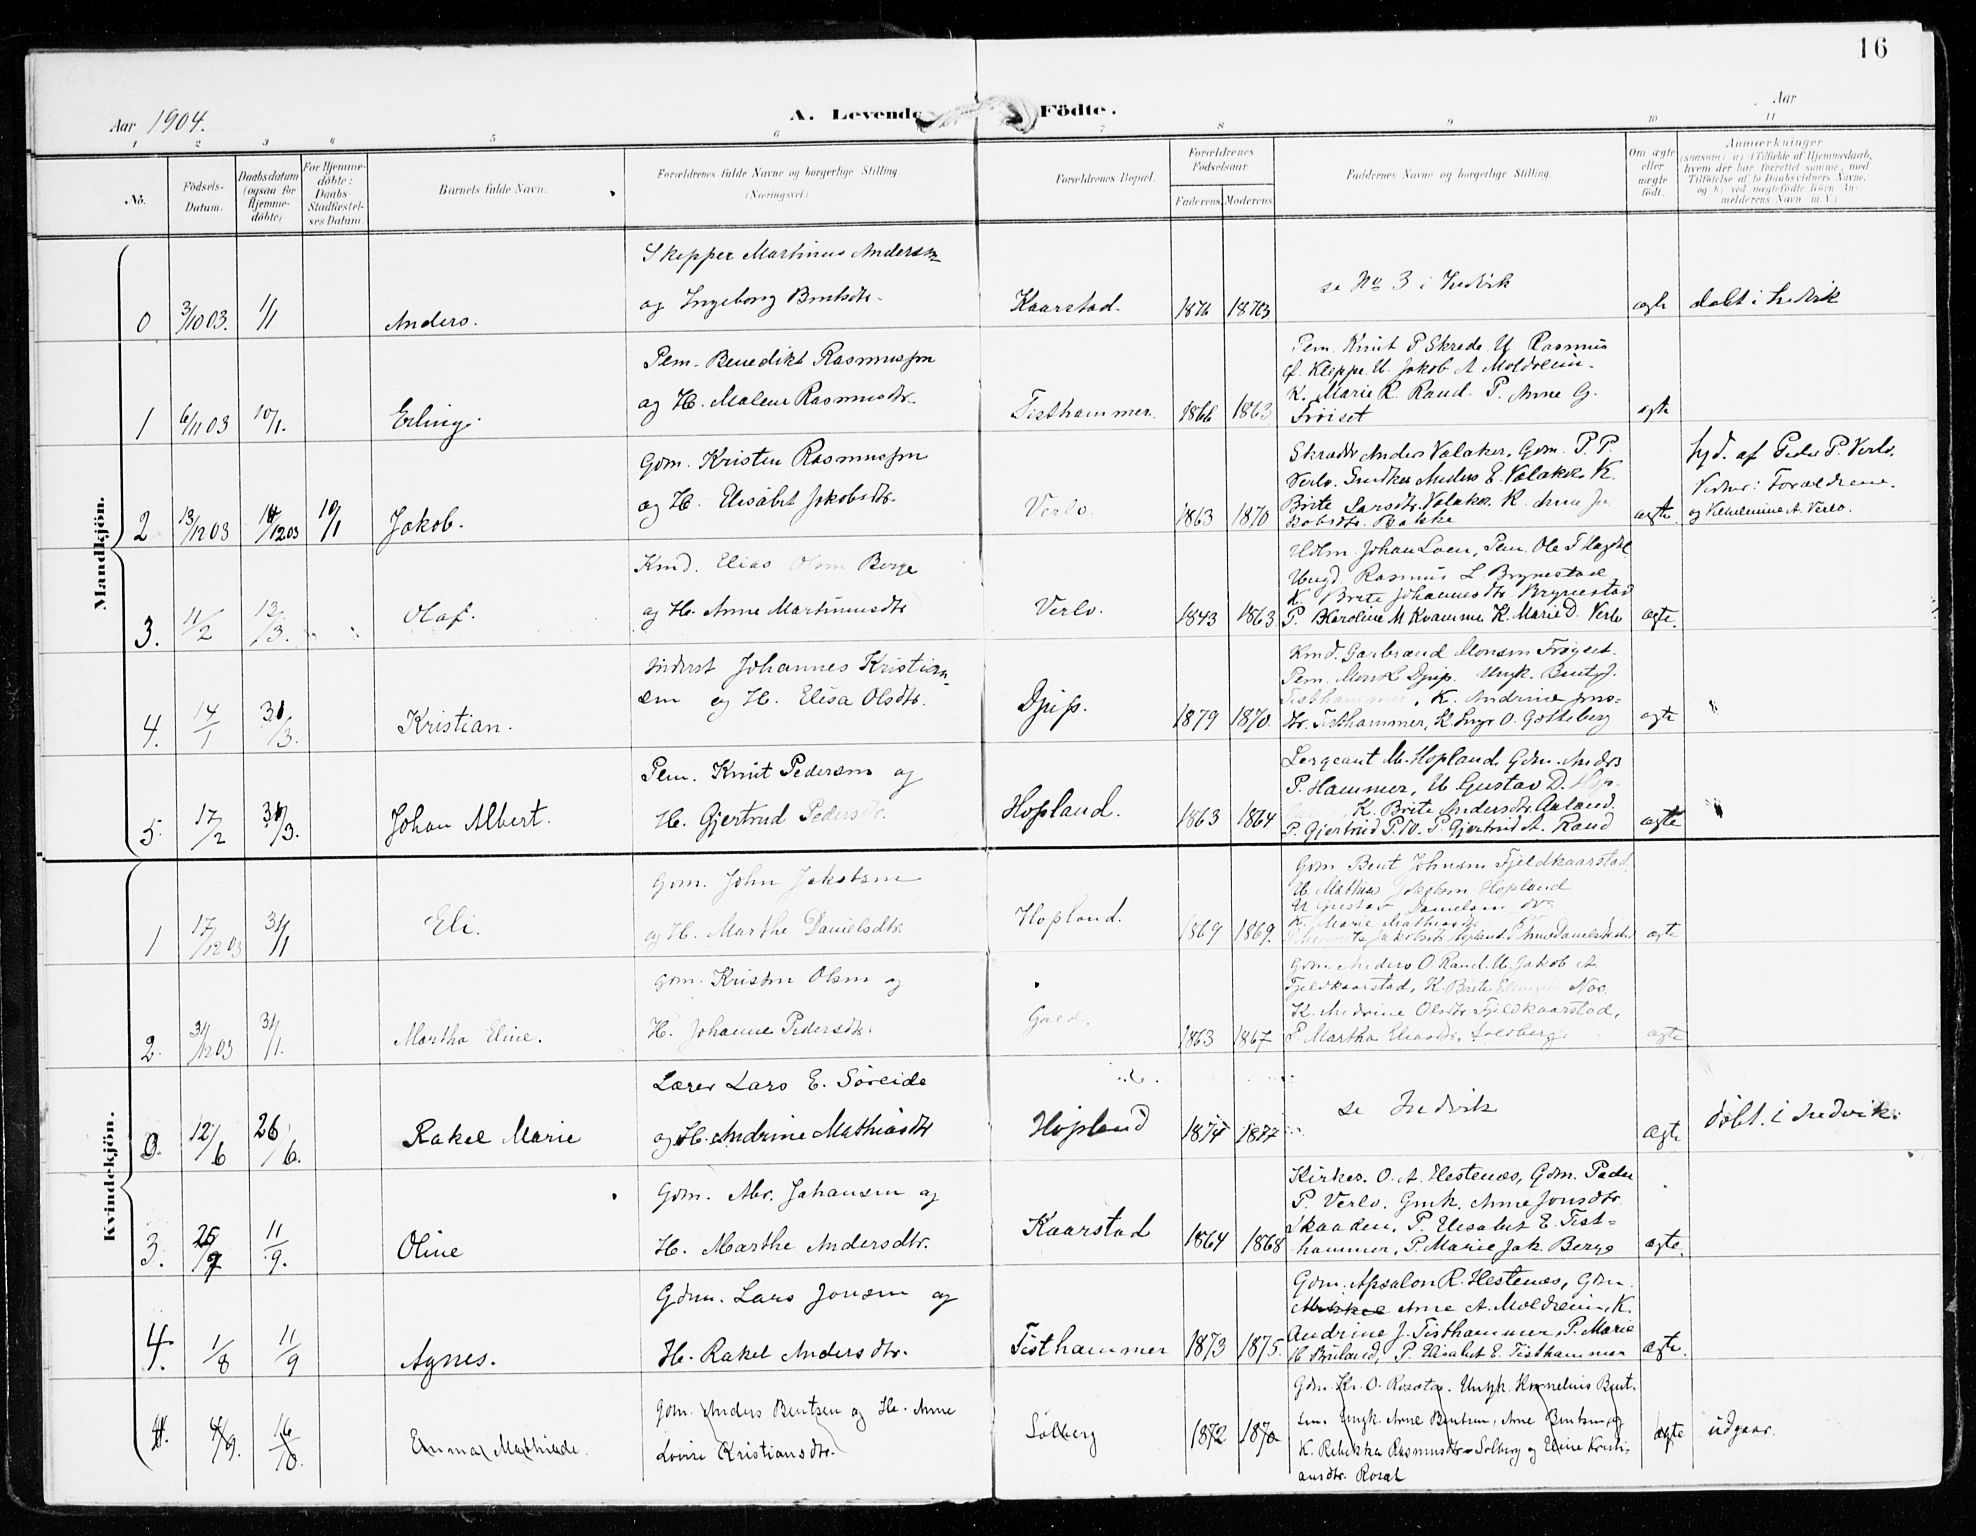 16
Aar 1904. A. Levende Födte. Aar
1 2 3 4 5 6 7 8 9 10 11
No. Födsels-Datum. Daabsdatum (ogsaa for Hjemmedöbte) For Hjemmedöbte: Daabs-Stadfæstelses Datum. Barnets fulde Navn. Forældrenes fulde Navne og borgerlige Stilling (Næringsvei.) Forældrenes Bopæl. Forældrenes Födselsaar. Faderens Moderens Faddernes Navne og borgerlige Stilling. Om ægte eller uægte födt. Anmærkninger
(saasom: a) i Tilfælde af Hjemmedaab,
hvem der har forrettet samme, med
Tilföielse af to Daabsvidners Navne,
og b) ved uægtefödte Börn Anmelderens Navn m. V.)
Mandkjön.
Skipper Martinus Andersen
og Ingeborg Bentsdtr.
0 3/10 03. 1/1 Anders. Kaarstad. se No 3 i Indvik ægte döbt i Indvik
Pem. Benedikt Rasmussen
og H. Malene Rasmusdtr.
1 6/11 03 10/1. Erling. Tisthammer. 1866 1863
Pem. Knut P Skrede U Rasmus
Kleppe. U. Jakob A Moldreim.
K. Marie R. Rand. P. Anne G.
Fröiset ægte
Gdm. Kristen Rasmussen
og H. Elisabet Jakobsdtr.
2 13/12 03 /12 03 10/1 Jakob. Verlo. 1863 1870
Skrædder Anders Valaker, Gdm. P. P.
Verlo. Snedker Anders E. Valaker. K.
Brite Larsdtr. Valaker. K. Anne Jakobsdtr. Bakke ægte
hjd. af Peder P. Verlo.
Vidner: Forældrene.
og Vilhelmine A. Verlo.
Kmd. Elias Olsen Berge
og H. Anne Martinusdtr
3. 11/2 13/3. Olaf. Verlo. 1843 1863.
Johan Loen, Pem. Ole T Hagdal
Ungd Rasmus L Brynestad
K. Brite Johannesdtr Brynestad
P. Karoline M Kvamme K. Marie D. Verlo ægte.
Inderst Johannes Kristiansen og H. Elisa Olsdtr.
4. 14/1 31/3. Kristian. Djup. 1879 1870.
Kmd. Garbrand Monsen Fröyset.
Pem. Mons Djup. Ungk. Bent J.
Tisthammer, K. Andrine Jonsdtr. Tisthammer, K. Inger O. Gotteberg ægte "
Pem. Knut Pedersen og
H. Gjertrud Pedersdtr.
5. 17/2 31/3. Johan Albert. Hopland. 1863 1864
Sergeant M. Hopland. Gdm. Anders
P. Hammer, U Gustav D. Hop-
K. Brite Andersdtr. Aaland.
P. Gjertrud P. P. Gjertrud A. Rand ægte "
Kvindekjön.
Gdm. John Jakobsen
og H. Marthe Danielsdtr.
1 17/12 03 31/1 Eli. Hopland. 1869 1869.
Gdm. Bent Johnsen Fjeldkaarstad.
U. Mathias Jakobsen Hopland
U Gustav Danielsen do
K. Marie Mathiasdtr
Jakobsdtr Hopland. P. Anne Danielsdtr ægte
Gdm. Kristen Olsen og
H. Johanne Pedersdtr.
2. 31/12 03 31/1. Martha Eline. 1863 1867
Gdm. Anders O Rand. U. Jakob A
Fjeldkaarstad, K. Brite Nos.
K. Andrine Olsdtr Fjeldkaarstad,
P. Martha Eliasdtr. Solberg. ægte
Lærer Lars E. Söreide
og H. Andrine Mathiasdtr
0. 12/6 26/6. Rakel Marie Hopland 1874 1877 se Indvik ægte döbt. i Indvik.
Gdm. Abr. Johansen og
H. Marthe Andersdtr.
3. 11/9. Oline Kaarstad 1864 1868
Kirkes. O. A. Hestenæs, Gdm. Peder
P. Verlo. Gmk. Anne Jonsdtr.
Skaaden, P. Elisabet E. Tisthammer, P. Marie Jak. Berge ægte.
Gdm. Lars Jonsen og
H. Rakel Andersdtr.
4. 1/8 11/9 Agnes. Tisthammer 1873 1875.
Gdm. Apsalon R. Hestenæs, Gdm.
Arne A. Moldreim, K.
Andrine J. Tisthammer, P. Marie
H Bruland, P. Elisabet E. Tisthammer ægte.
Gdm. Anders Bentsen og H. Anne
Lovise Kristiansdtr.
4. 4/9. 16/ Emma Mathilde. Solberg 1872 1870
Gdm. Kr. O. Roset. Ungk. Kornelius Bentsen. Ungk. Arne Bentsen, Arne Bentsen og
K. Rebekka Rasmusdtr Solberg og Eline Kristiansdtr. Roset ægte udgaar.